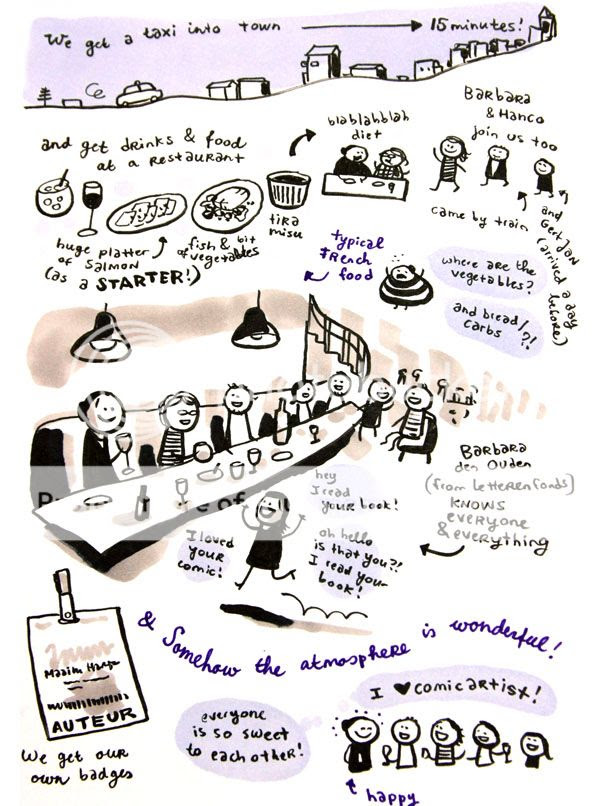 We get a taxi into town
15 minutes!
and get drinks & food
at a restaurant
huge platter
of salmon
(as a STARTER!)
fish & bit
of vegetables
tira
misu
blablahblah
diet
Barbara
& Hanco
join us too
came by train
and
Gert Jan
(arrived a day
before)
typical
French
food
where are the
vegetables?
and bread/
carbs ?!!
Barbara
den Ouden
(from letterenfonds)
KNOWS
everyone
& everything
hey
I read
your book!
I loved
your
comic!
oh hello
is that you?!
I read your
book!
& Somehow the atmosphere is wonderful!
AUTEUR
We get our
own badges
everyone
is so sweet
to each other!
I ♥ comic artist!
happy